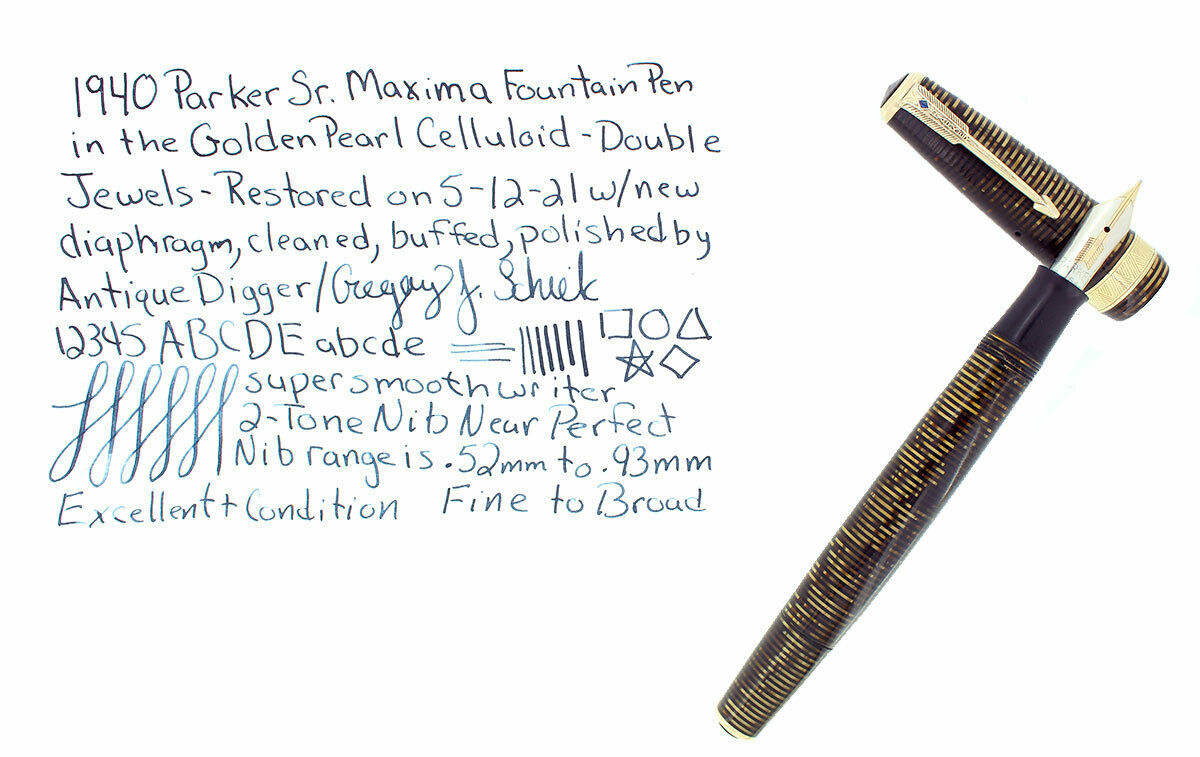 1940 Parker Sr. Maxima Fountain Pen
in the Golden Pearl Celluloid - Double
Jewels - Restored on 5-12-21 w/new
diaphragm, cleaned, buffed, polished by
Antique Digger/Gregory J. Schiek
12345 ABCDE abcde
super smooth writer
2-Tone Nib Near Perfect
Nib range is .52mm to .93mm
Excellent + Condition Fine to Broad